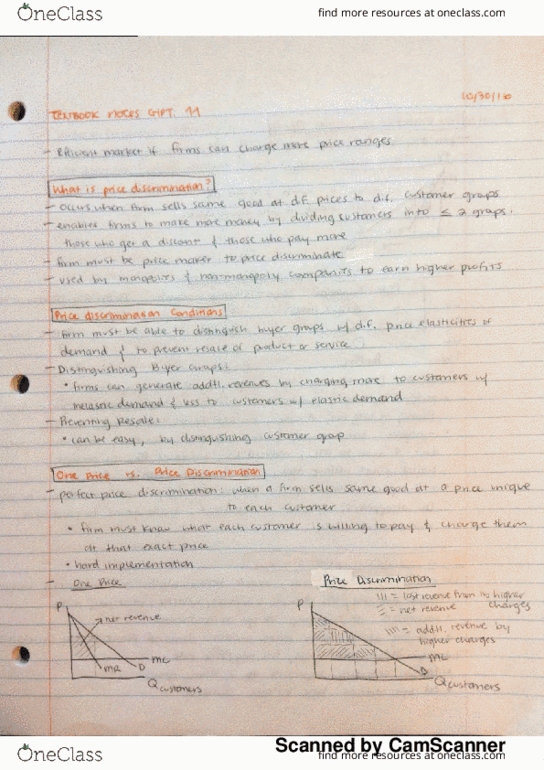 OneClass
find more resources at oneclass.com
10/30/16
TEXTBOOK NOTES CHPT. 11
- Efficient market if firms can charge more price ranges
What is price discrimination?
- occurs when firm sells same good at d.f. prices to d.f. customer groups
- enables firms to make more money by dividing customers into ≤ 2 groups:
those who get a discount & those who pay more
- firm must be price maker to price discriminate
- used by monopolies & non-monopoly companies to earn higher profits
Price discrimination Conditions
- firm must be able to distinguish buyer groups w/ d.f. price elasticities of
demand & to prevent resale of product or service
- Distinguishing Buyer Groups:
• firms can generate addtl. revenues by charging more to customers w/
inelastic demand & less to customers w/ elastic demand
- Preventing Resale:
• can be easy, by distinguishing customer group
One Price vs. Price Discrimination
- perfect price discrimination: when a firm sells same good at a price unique
to each customer
• firm must know what each customer is willing to pay & charge them
at that exact price
• hard implementation
- One Price
P
net revenue
MC
MR
D
Q customers
Price Discrimination
||| = lost revenue from no higher
charges
= net revenue
= addtl. revenue by
higher charges
P
MC
D
Q customers
Scanned by CamScanner
OneClass
find more resources at oneclass.com